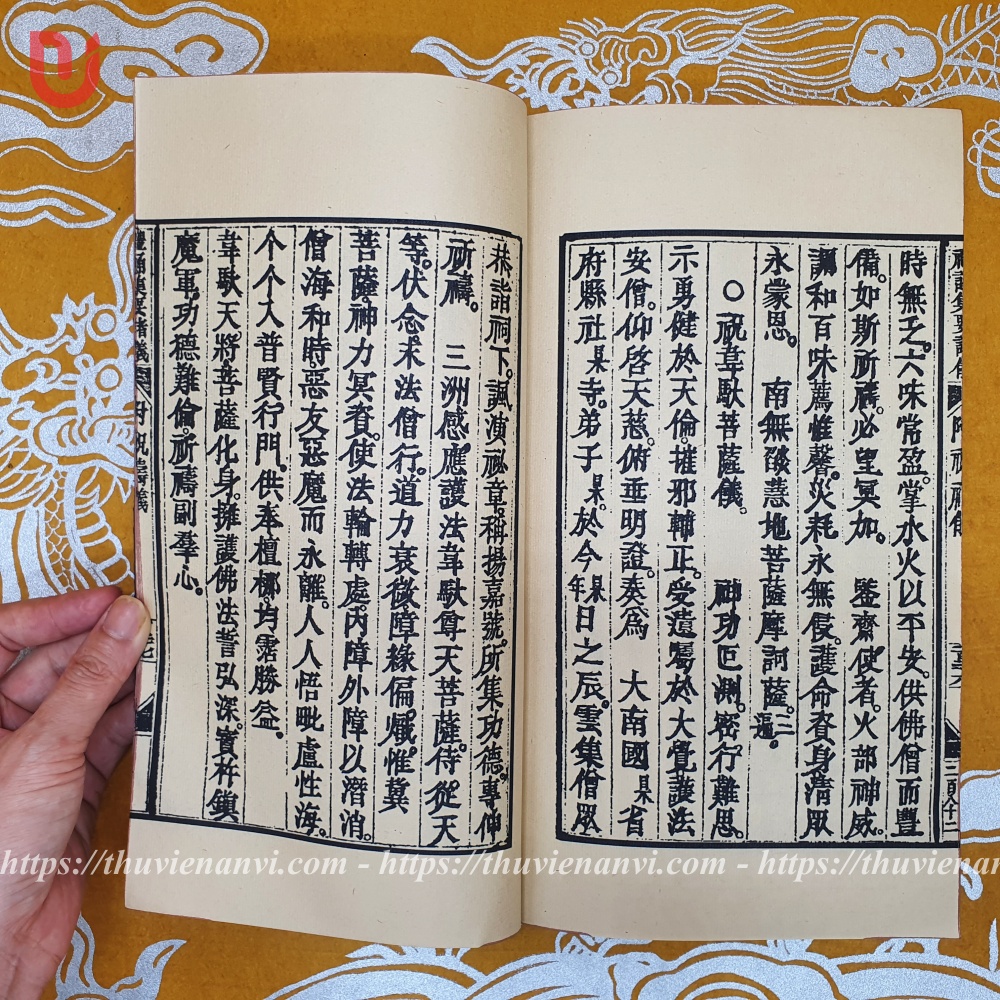 時無乏。六味常盈。掌水火以平安。供佛僧而豐
備。如斯祈禱。必望冥加。 監齋使者。火部神威。
調和百味薦惟馨。災耗永無侵。護命資身清眾
永蒙恩。 南無燄慧地菩薩摩訶薩。三遍。
○祝韋馱菩薩儀。 神功叵測。密行難思。
示勇健於天倫。摧邪輔正。受遺囑於大覺護法
安僧。仰啓天慈。俯垂明證。奏爲 大南國某省
府縣社某寺。弟子某。於今某年日之辰。雲集僧眾
恭詣祠下。諷演祕章。稱揚嘉號。所集功德。專伸
祈禱。 三洲感應。護法韋馱尊天菩薩。侍從天
等。伏念。末法僧行。道力衰微。障緣偏熾。惟冀
菩薩。神力冥資。使法輪轉處。內障外障以潛消。
僧海和時。惡友惡魔而永離。人人悟毗盧性海。
个个入普賢行門。供奉檀那。均霑勝益。
韋馱天將。菩薩化身。擁護佛法誓弘深。寶杵鎮
魔軍。功德難倫。祈禱副羣心。
https://thuvienanvi.com - https://thuvienanvi.com - https://thuvienanv